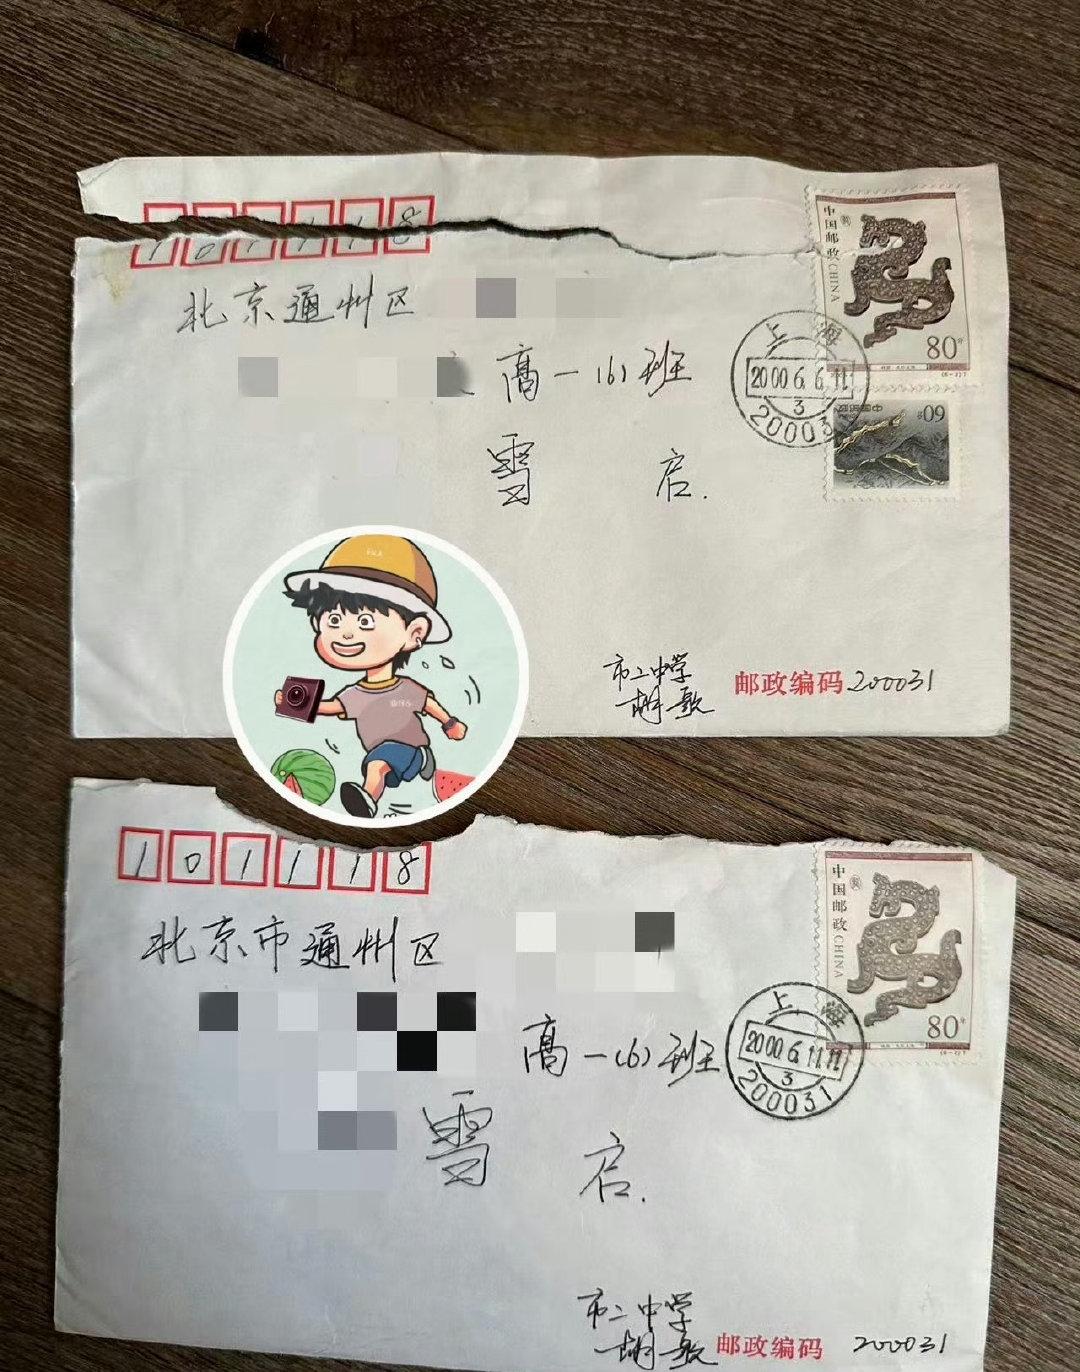 101118
北京通州区
高一(6)班
雪 启.
中国邮政 CHINA
80分
(6-2)T
上海
2000.6.6.11
3
200031
中国邮政
60分
市二中学
胡歌
邮政编码 200031
101118
北京市通州区
高一(6)班
雪 启.
中国邮政 CHINA
80分
(6-2)T
上海
2000.6.11.11
3
200031
市二中学
胡歌
邮政编码 200031